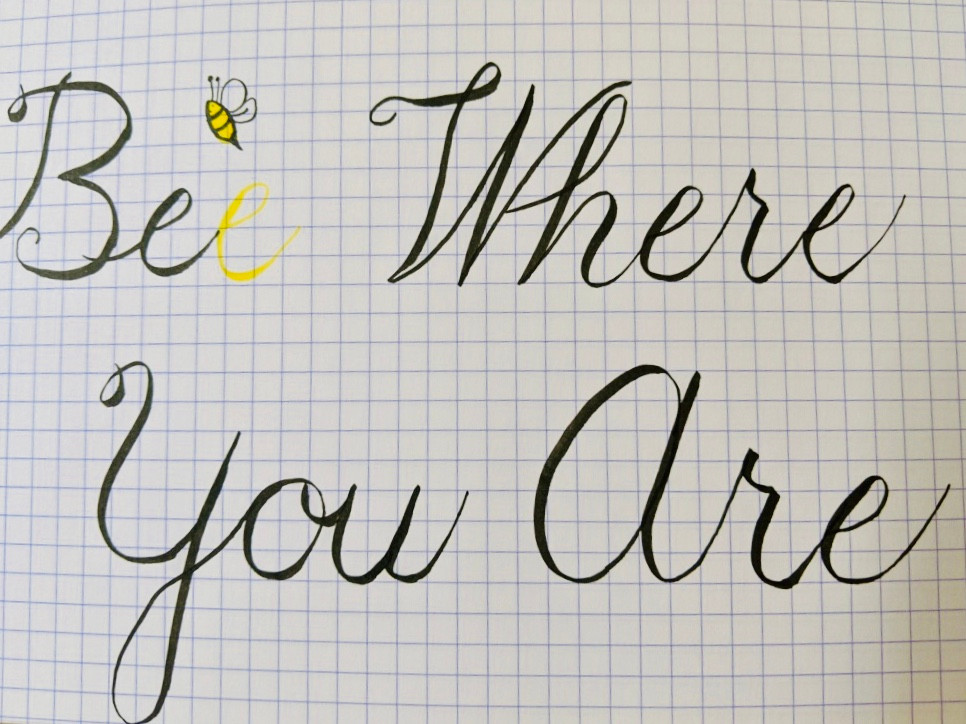 Bee Where
You Are